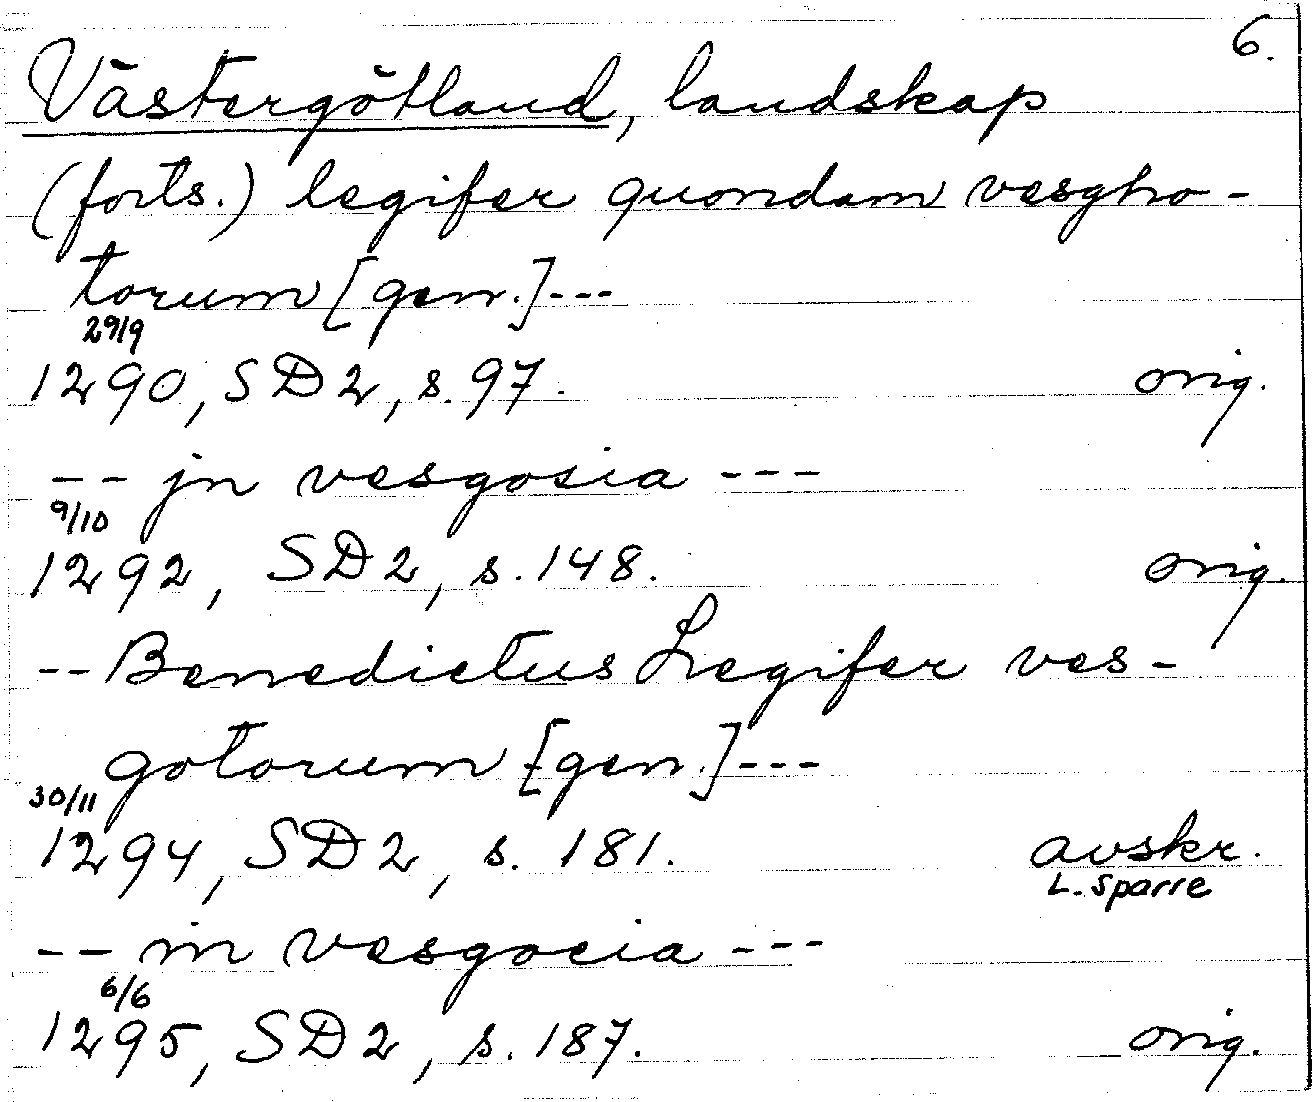 6.
Västergötland, landskap
(forts.) legifer quondam vesgho-
torum [gen.]---
29/9
1290, SD2, s. 97. orig.
-- jn vesgosia ---
9/10
1292, SD2, s. 148. orig.
-- Benedictus Legifer ves-
gotorum [gen.]---
30/11
1294, SD2, s. 181. avskr.
L. Sparre
-- in vesgocia ---
6/6
1295, SD2, s. 187. orig.